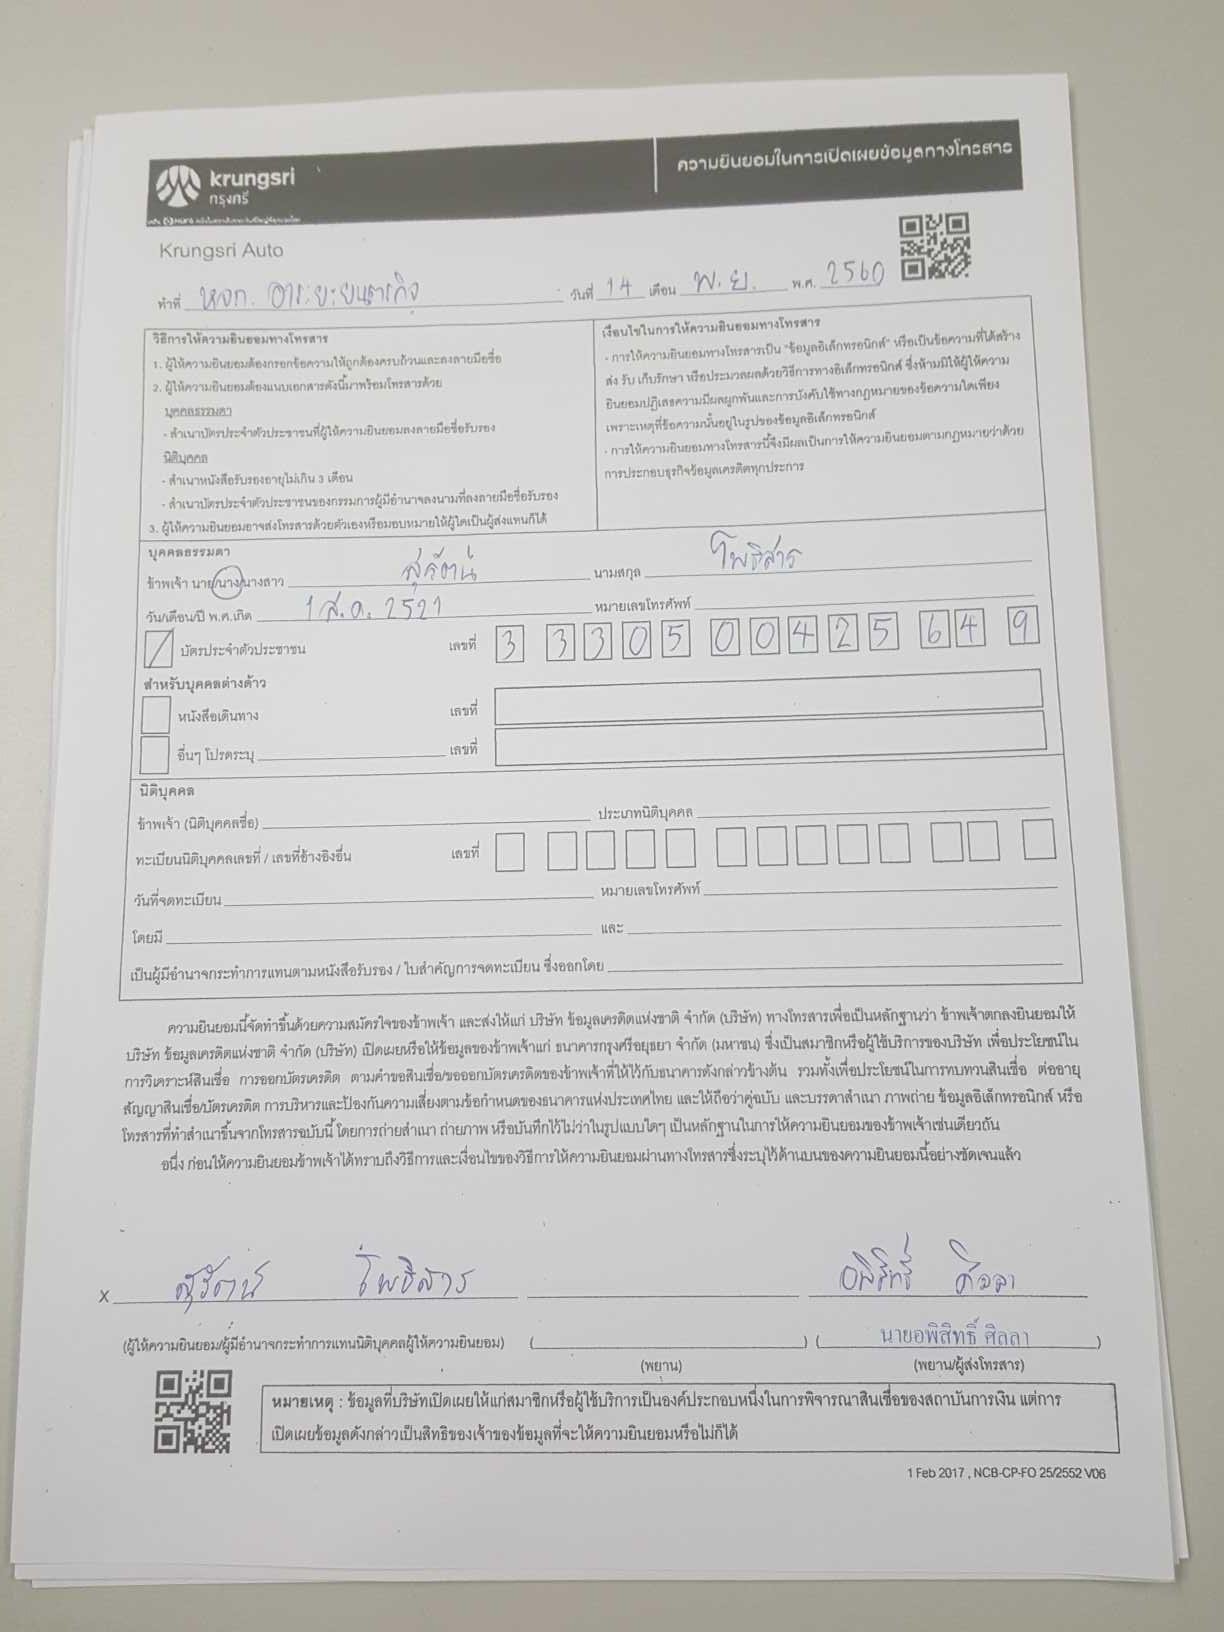 krungsri
กรุงศรี
ความยินยอมในการเปิดเผยข้อมูลทางโทรสาร
Krungsri Auto
ทำที่ หจก. อารยะยนตรกิจ วันที่ 14 เดือน พ.ย. พ.ศ. 2560
วิธีการให้ความยินยอมทางโทรสาร
1. ผู้ให้ความยินยอมต้องกรอกข้อความให้ถูกต้องครบถ้วนและลงลายมือชื่อ
2. ผู้ให้ความยินยอมต้องแนบเอกสารดังนี้มาพร้อมโทรสารด้วย
บุคคลธรรมดา
- สำเนาบัตรประจำตัวประชาชนที่ผู้ให้ความยินยอมลงลายมือชื่อรับรอง
นิติบุคคล
- สำเนาหนังสือรับรองอายุไม่เกิน 3 เดือน
- สำเนาบัตรประจำตัวประชาชนของกรรมการผู้มีอำนาจลงนามที่ลงลายมือชื่อรับรอง
3. ผู้ให้ความยินยอมอาจส่งโทรสารด้วยตัวเองหรือมอบหมายให้ผู้ใดเป็นผู้ส่งแทนก็ได้
เงื่อนไขในการให้ความยินยอมทางโทรสาร
- การให้ความยินยอมทางโทรสารเป็น "ข้อมูลอิเล็กทรอนิกส์" หรือเป็นข้อความที่ได้สร้าง
ส่ง รับ เก็บรักษา หรือประมวลผลด้วยวิธีการทางอิเล็กทรอนิกส์ ซึ่งห้ามมิให้ผู้ให้ความ
ยินยอมปฏิเสธความมีผลผูกพันและการบังคับใช้ทางกฎหมายของข้อความใดเพียง
เพราะเหตุที่ข้อความนั้นอยู่ในรูปของข้อมูลอิเล็กทรอนิกส์
- การให้ความยินยอมทางโทรสารนี้จึงมีผลเป็นการให้ความยินยอมตามกฎหมายว่าด้วย
การประกอบธุรกิจข้อมูลเครดิตทุกประการ
บุคคลธรรมดา
ข้าพเจ้า นาย/นาง/นางสาว สุรัตน์ นามสกุล โพธิสาร
วัน/เดือน/ปี พ.ศ.เกิด 1 ส.ค. 2521 หมายเลขโทรศัพท์
บัตรประจำตัวประชาชน เลขที่ 3 3305 00425 64 9
สำหรับบุคคลต่างด้าว
หนังสือเดินทาง เลขที่
อื่นๆ โปรดระบุ เลขที่
นิติบุคคล
ข้าพเจ้า (นิติบุคคลชื่อ) ประเภทนิติบุคคล
ทะเบียนนิติบุคคลเลขที่ / เลขที่อ้างอิงอื่น เลขที่
วันที่จดทะเบียน หมายเลขโทรศัพท์
โดยมี และ
เป็นผู้มีอำนาจกระทำการแทนตามหนังสือรับรอง / ใบสำคัญการจดทะเบียน ซึ่งออกโดย
ความยินยอมนี้จัดทำขึ้นด้วยความสมัครใจของข้าพเจ้า และส่งให้แก่ บริษัท ข้อมูลเครดิตแห่งชาติ จำกัด (บริษัท) ทางโทรสารเพื่อเป็นหลักฐานว่า ข้าพเจ้าตกลงยินยอมให้
บริษัท ข้อมูลเครดิตแห่งชาติ จำกัด (บริษัท) เปิดเผยหรือให้ข้อมูลของข้าพเจ้าแก่ ธนาคารกรุงศรีอยุธยา จำกัด (มหาชน) ซึ่งเป็นสมาชิกหรือผู้ใช้บริการของบริษัท เพื่อประโยชน์ใน
การวิเคราะห์สินเชื่อ การออกบัตรเครดิต ตามคำขอสินเชื่อ/ขอออกบัตรเครดิตของข้าพเจ้าที่ให้ไว้กับธนาคารดังกล่าวข้างต้น รวมทั้งเพื่อประโยชน์ในการทบทวนสินเชื่อ ต่ออายุ
สัญญาสินเชื่อ/บัตรเครดิต การบริหารและป้องกันความเสี่ยงตามข้อกำหนดของธนาคารแห่งประเทศไทย และให้ถือว่าคู่ฉบับ และบรรดาสำเนา ภาพถ่าย ข้อมูลอิเล็กทรอนิกส์ หรือ
โทรสารที่ทำสำเนาขึ้นจากโทรสารฉบับนี้ โดยการถ่ายสำเนา ถ่ายภาพ หรือบันทึกไว้ไม่ว่าในรูปแบบใดๆ เป็นหลักฐานในการให้ความยินยอมของข้าพเจ้าเช่นเดียวกัน
อนึ่ง ก่อนให้ความยินยอมข้าพเจ้าได้ทราบถึงวิธีการและเงื่อนไขของวิธีการให้ความยินยอมผ่านทางโทรสารซึ่งระบุไว้ด้านบนของความยินยอมนี้อย่างชัดเจนแล้ว
X สุรัตน์ โพธิสาร อพิสิทธิ์ ศิลลา
(ผู้ให้ความยินยอม/ผู้มีอำนาจกระทำการแทนนิติบุคคลผู้ให้ความยินยอม) ( ) ( นายอพิสิทธิ์ ศิลลา )
(พยาน) (พยาน/ผู้ส่งโทรสาร)
หมายเหตุ : ข้อมูลที่บริษัทเปิดเผยให้แก่สมาชิกหรือผู้ใช้บริการเป็นองค์ประกอบหนึ่งในการพิจารณาสินเชื่อของสถาบันการเงิน แต่การ
เปิดเผยข้อมูลดังกล่าวเป็นสิทธิของเจ้าของข้อมูลที่จะให้ความยินยอมหรือไม่ก็ได้
1 Feb 2017 , NCB-CP-FO 25/2552 V06